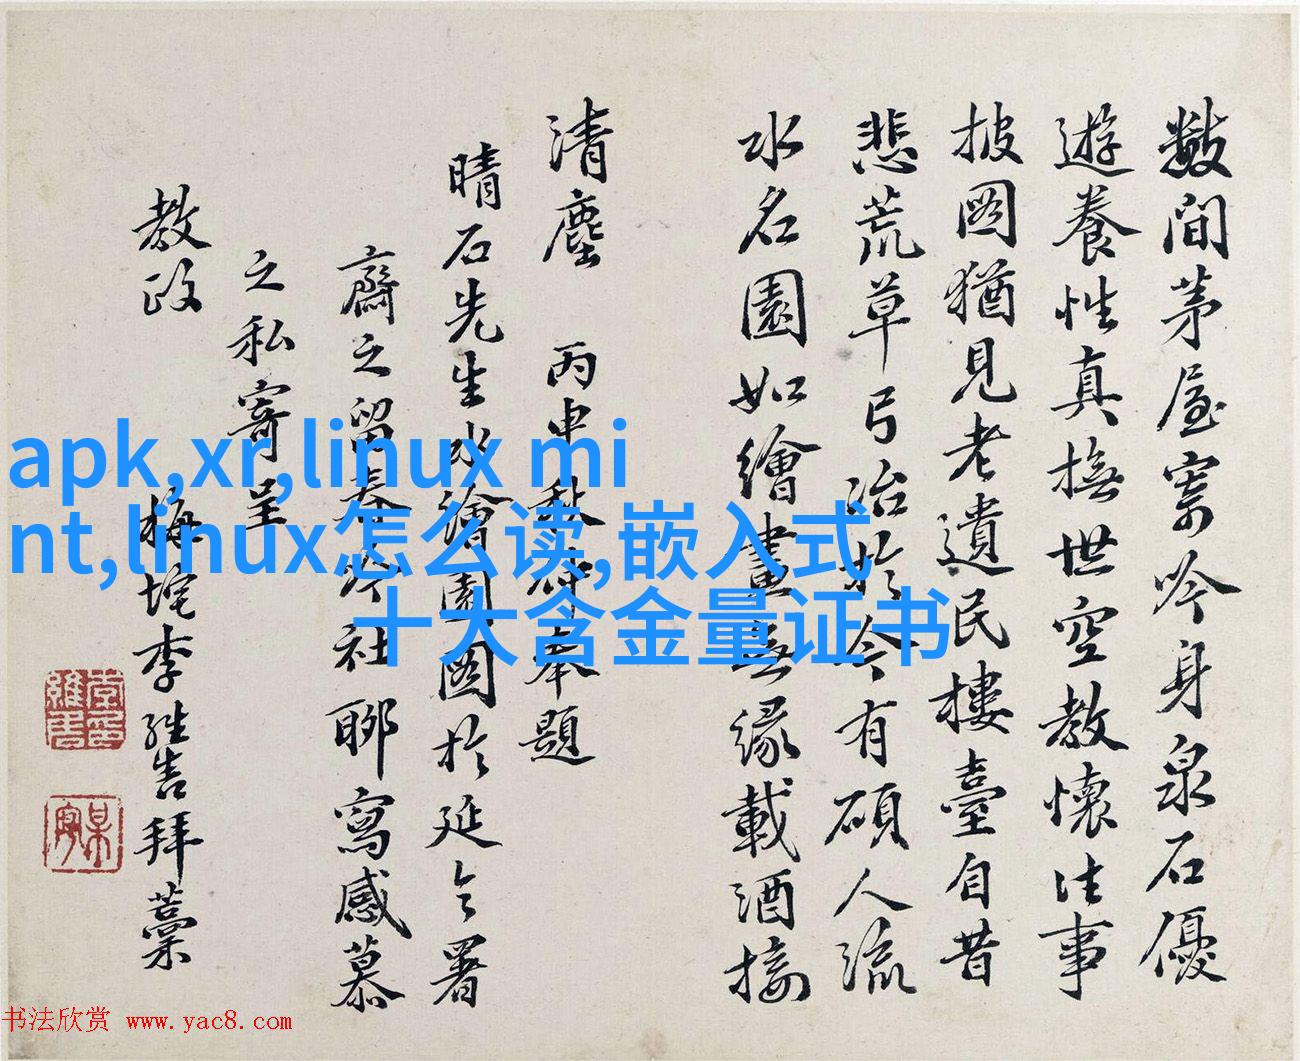 數間茅屋寄吟身泉石優
遊養性真撫世空教懷往事
披圖猶見老遺民樓臺自昔
悲荒草弓冶於今有碩人流
水名園如繪畫無緣載酒接
清塵 丙申秋 奉題
晴石先生水繪園圖於延令署
齋之留春吟社聊寫感慕
之私寄呈
教政
梅垞李繼善拜藁
apk,xr,linux mi
nt,linux怎么读,嵌入式
十大含金量证书
书法欣赏 www.yac8.com